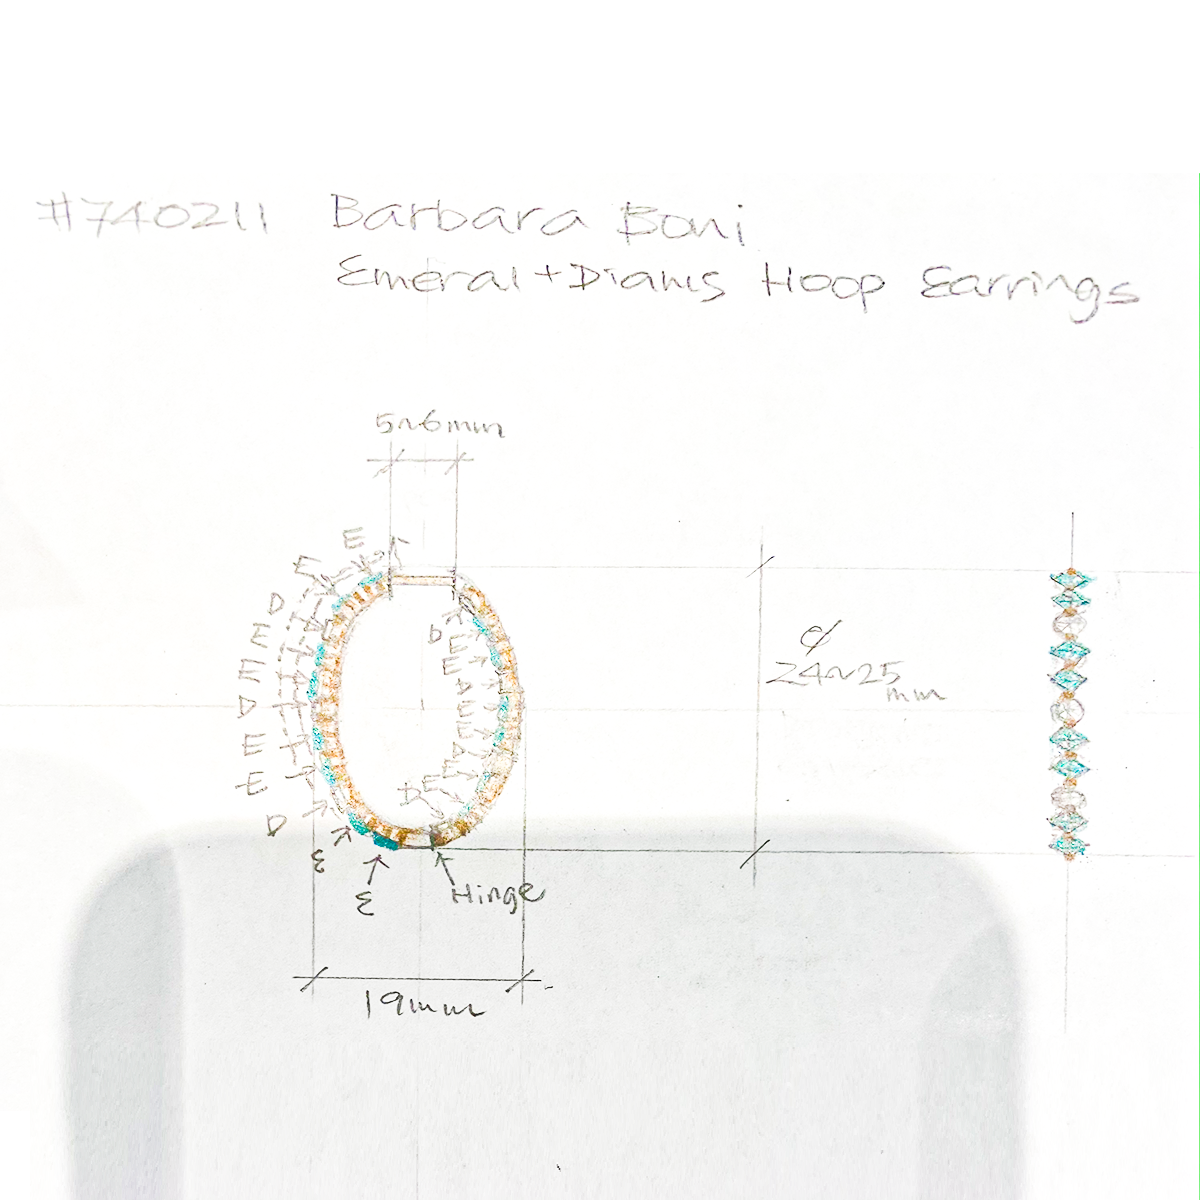 #740211 Barbara Boni
Emeral+Diams Hoop Earrings
5~6mm
E
E
D
E
E
D
E
E
D
E
E
D
E
E
D
E
E
D
E
D
∅
24~25
mm
Hinge
19mm